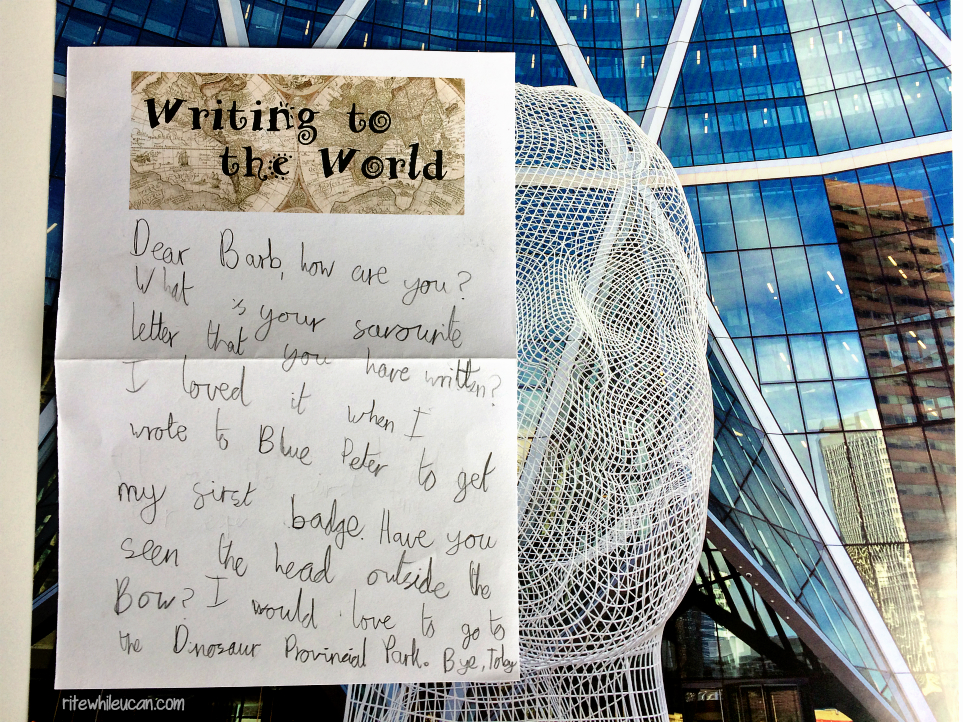 Writing to
the World
Dear Barb, how are you?
What is your savourite
letter that you have written?
I loved it when I
wrote to Blue Peter to get
my sirst badge. Have you
seen the head outside the
Bow? I would love to go to
the Dinosaur Provincial Park. Bye, Toby
ritewhileucan.com